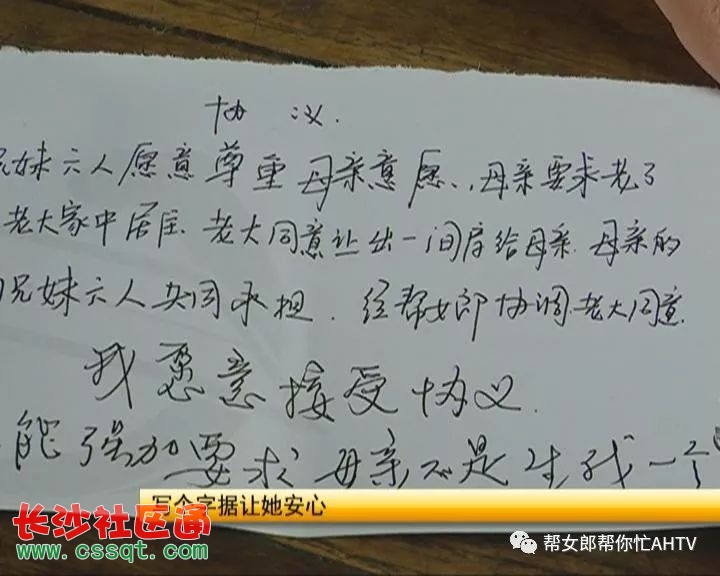 协 议.
兄妹六人愿意尊重母亲意愿.,母亲要求老了
老大家中居住.老大同意让出一间房给母亲.母亲的
兄妹六人共同承担.经帮女郎协调.老大同意.
我愿意接受协议.
能强加要求母亲不是生我一个
写个字据让她安心
长沙社区通
www.cssqt.com
帮女郎帮你忙AHTV